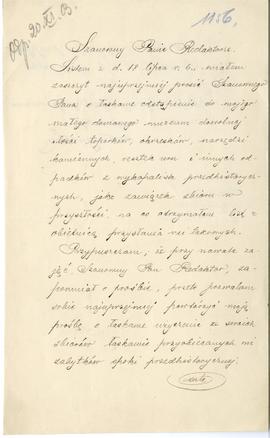 Odp. 20/XI. B.
1156,
Szanowny Panie Redaktorze.
Listem z d. 18 lipca r. b. miałem
zaszczyt najuprzejmiej prosić Szanownego
Pana o łaskawe odstąpienie do mojego
małego domowego muzeum dowolnej
ilości toporków, okrzesków, narzędzi
kamiennych, resztek urn i innych od-
padków z wykopalisk przedhistorycz-
nych, jako zawiązek zbioru w
przyszłości, na co otrzymałem list z
obietnicą przysłania mi takowych.
Przypuszczam, że przy nawale za-
jęć, Szanowny Pan Redaktor, za-
pomniał o prośbie, przeto pozwalam
sobie najuprzejmiej powtórzyć moją
prośbę o łaskawe użyczenie ze swoich
zbiorów łaskawie przyobiecanych mi
zabytków epoki przedhistorycznej.